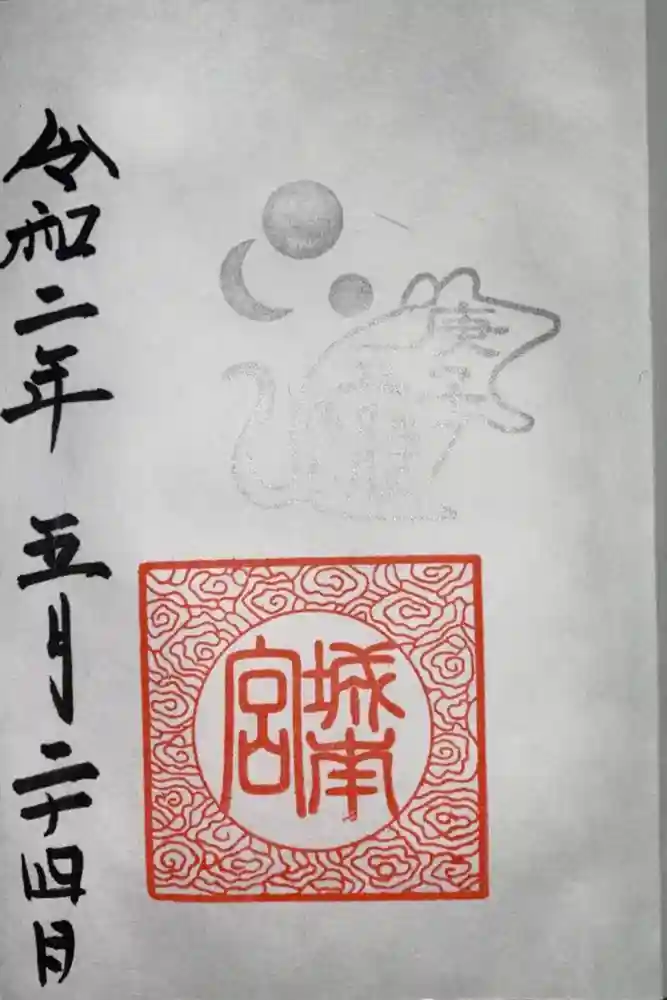 庚子
城南
宮
令和二年 五月二十四日